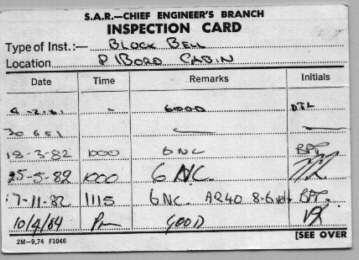 S.A.R.—CHIEF ENGINEER'S BRANCH
INSPECTION CARD
Type of Inst.:— BLOCK BELL
Location P'BORO CABIN
Date Time Remarks Initials
4-2-81 - GOOD
30 6 81 —
18-3-82 1000 GNC
25-5-82 1000 G NC.
17-11-82 1115 GNC. AR40 8-6 volts
10/4/84 Pm GOOD
2M—9.74 F1046 [SEE OVER